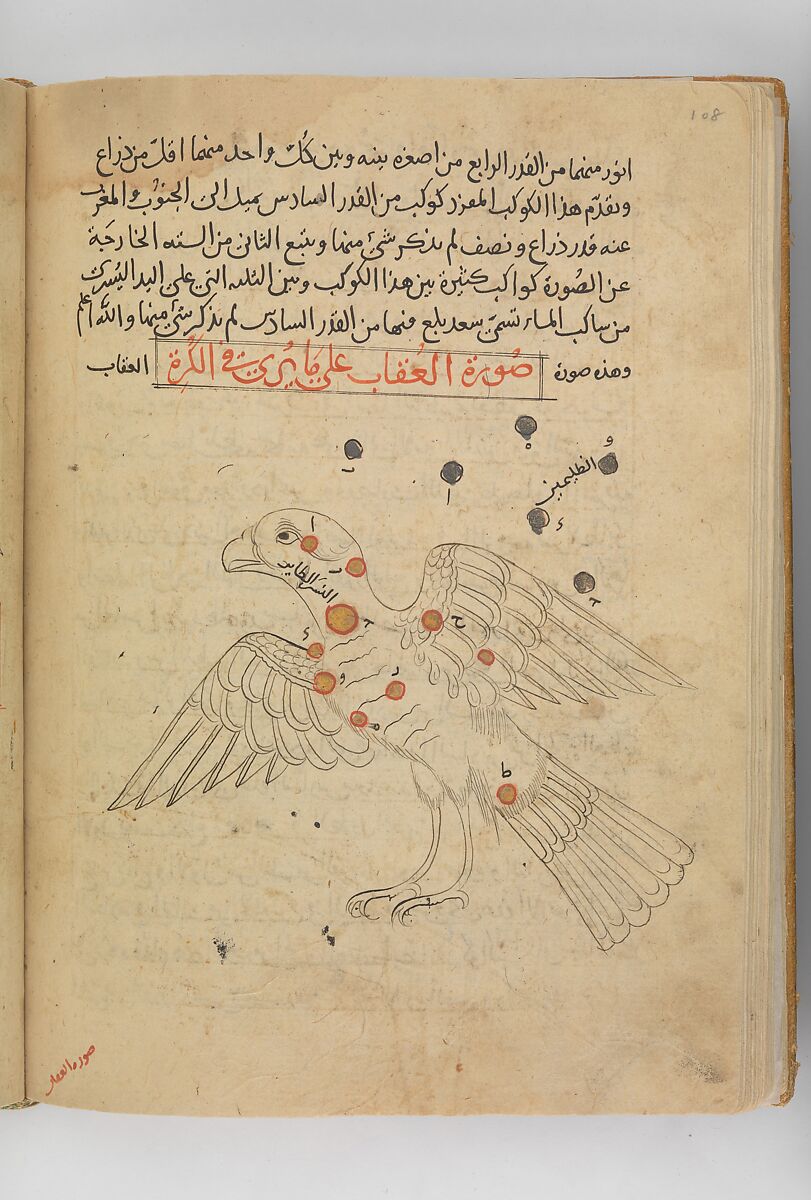 108
انور منهما من القدر الرابع من اصغره بينه وبين كل واحد منهما اقل من ذراع
ويتقدم هذا الكوكب المفرد كوكب من القدر السادس يميل الى الجنوب والمغرب
عنه قدر ذراع ونصف لم يذكر شئ منهما ويتبع الثاني من الستة الخارجة
عن الصورة كواكب كثيرة بين هذا الكوكب وبين الثلثه التي على اليد اليسرى
من ساكب الماء تسمى سعد بلع فيها من القدر السادس لم يذكر شئ منها والله اعلم
وهذه صورة صورة العقاب على ما يرى في الكرة العقاب
ه
و
الظليمين
ب
ا
ء
ا
ب
ج
النسر الطاير
ج
ح
ء
و
ز
ه
ط
صورة العقاب